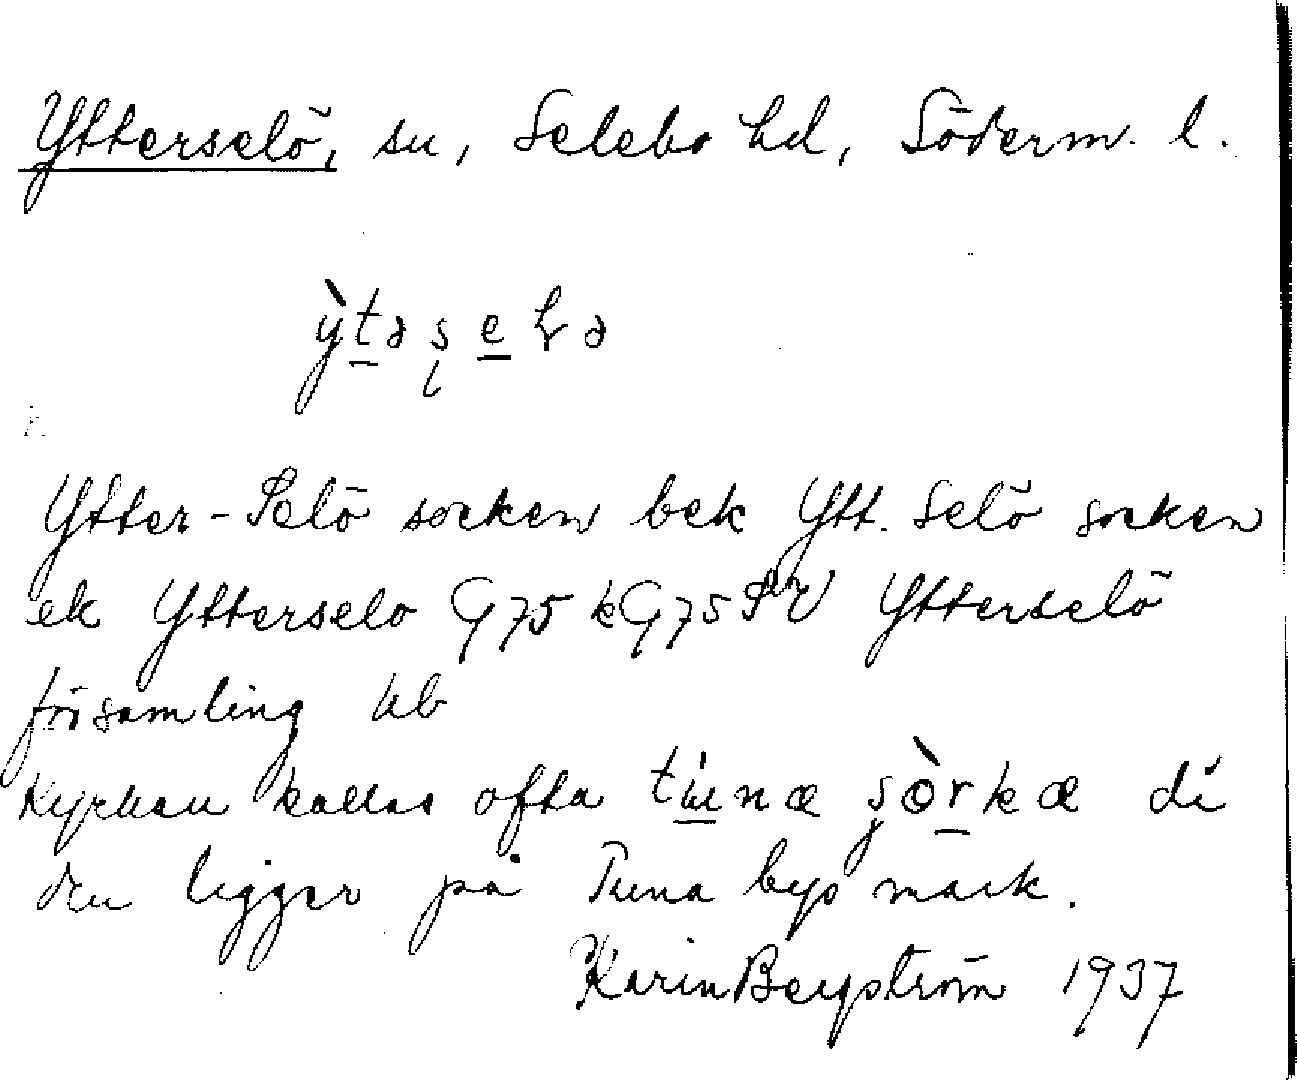 Ytterselö, sn, Selebo hd, Söderm. l.
ỳtəṣeɫə
Ytter-Selö socken bek Ytt. Selö socken
ek Ytterselo G75 kG75SV Ytterselö
församling kb
Kyrkan kallas ofta tunæ şòrkæ då
den ligger på Tuna bys mark.
Karin Bergström 1937